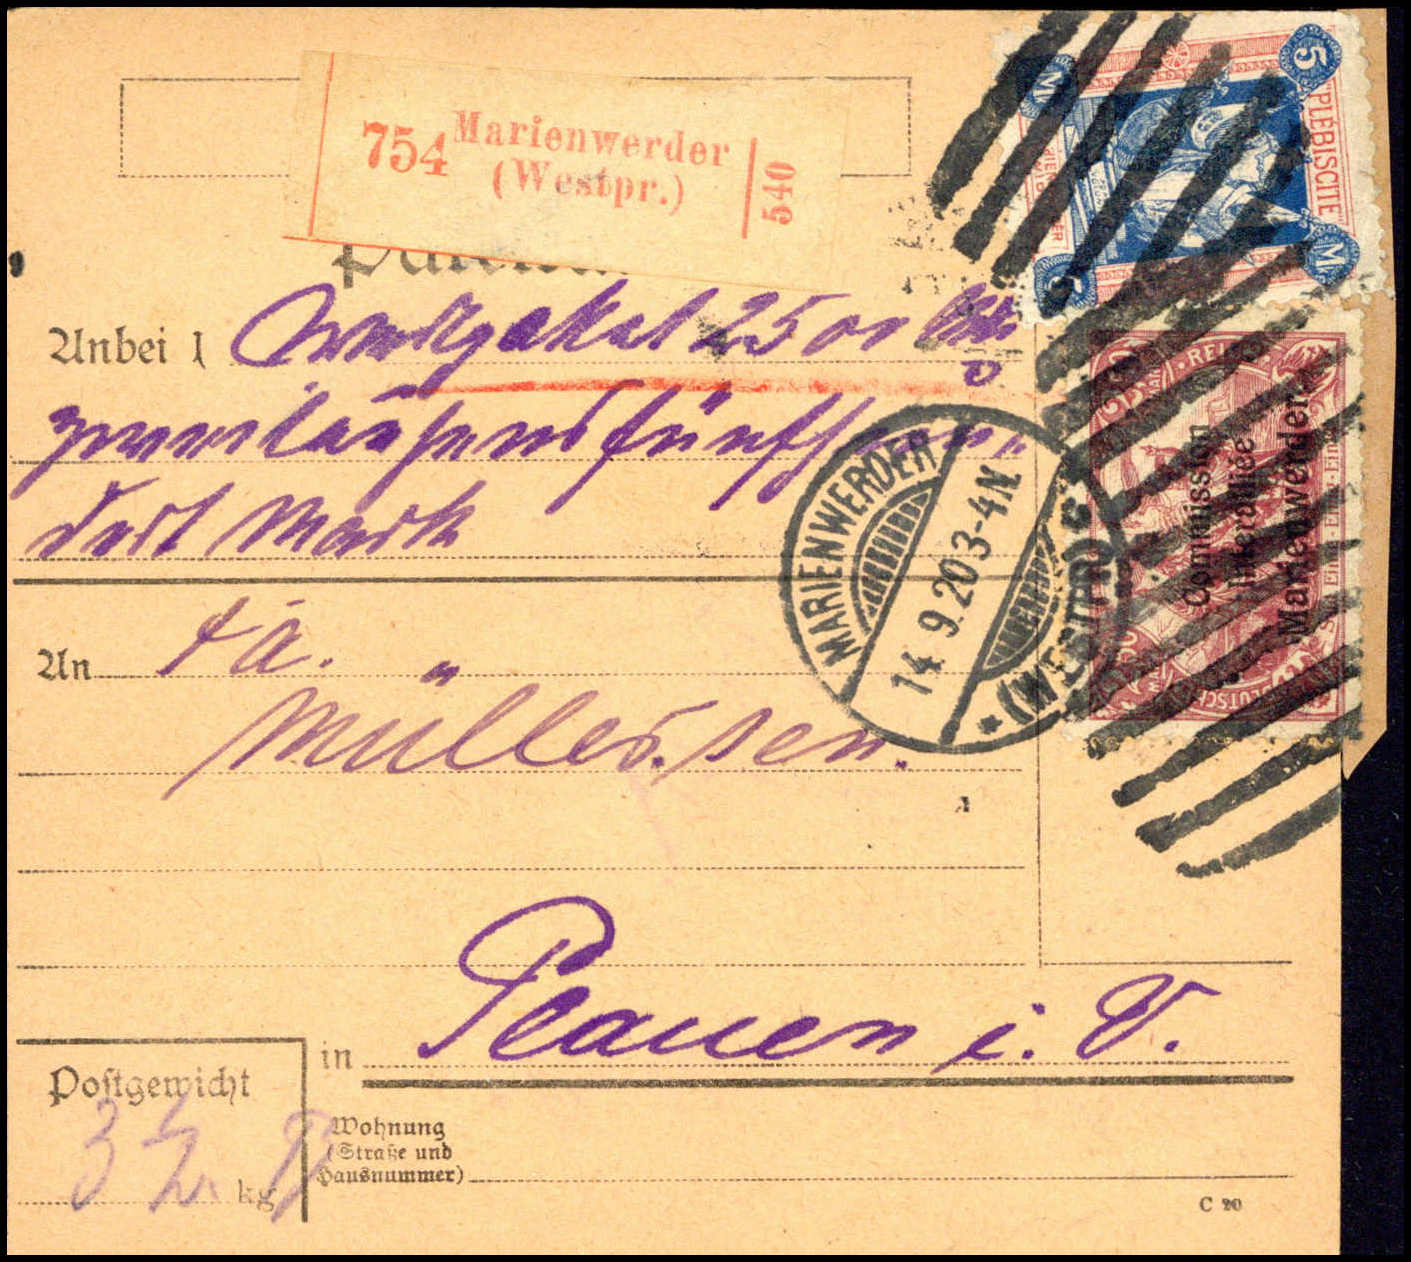 754 Marienwerder
(Westpr.)
540
Anbei 1 Wertpaket 2500 Mk
zweitausendfünfhun-
dert Mark
An Fa.
Müller sen.
in Plauen i. V.
Postgewicht
3 1/2 kg
Wohnung
(Straße und
Hausnummer)
C 20
MARIENWERDER
14.9.20 3-4N
* (WESTPR) c
5 M
PLEBISCITE
M 5
Commission
Interalliée
Marienwerder